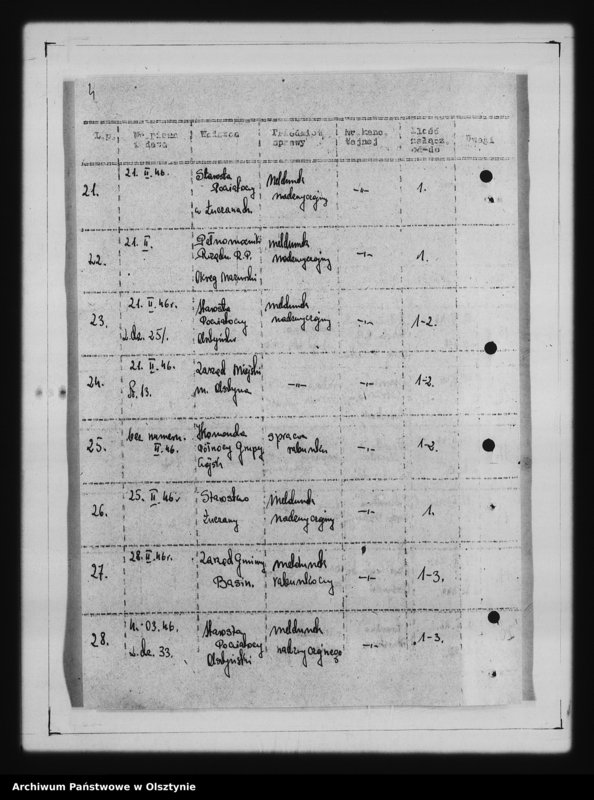 4
L.p.
Nr. pisma
z dnia
Władza
Treść
sprawy
Ilość
załącz.
od-do
Uwagi
21.
21. II. 46.
Starosta
Powiatowy
w Łuczanach
Meldunek
nadzwyczajny
-"-
1.
22.
21. II.
Pełnomocnik
Rządu R.P.
Okręg Mazurski
Meldunek
nadzwyczajny
-"-
1.
23.
21. II. 46r.
L.dz. 25/.
Starosta
Powiatowy
Olsztyński
Meldunek
nadzwyczajny
-"-
1-2.
24.
21. II. 46.
Zarząd Miejski
m. Olsztyna
-"-
-"-
1-2.
25.
bez numeru.
II. 46.
Komenda
Północy Grupy
Wojsk
sprawa
rabunku
-"-
1-2.
26.
25. II. 46r
Starostwo
Łuczany
Meldunek
nadzwyczajny
-"-
1.
27.
28. II. 46r.
Zarząd Gminy
Basin.
meldunek
rabunkowy
-"-
1-3.
28.
4. 03. 46.
L.dz. 33.
Starosta
Powiatowy
Olsztyński
Meldunek
nadzwyczajnego
-"-
1-3.
Archiwum Państwowe w Olsztynie